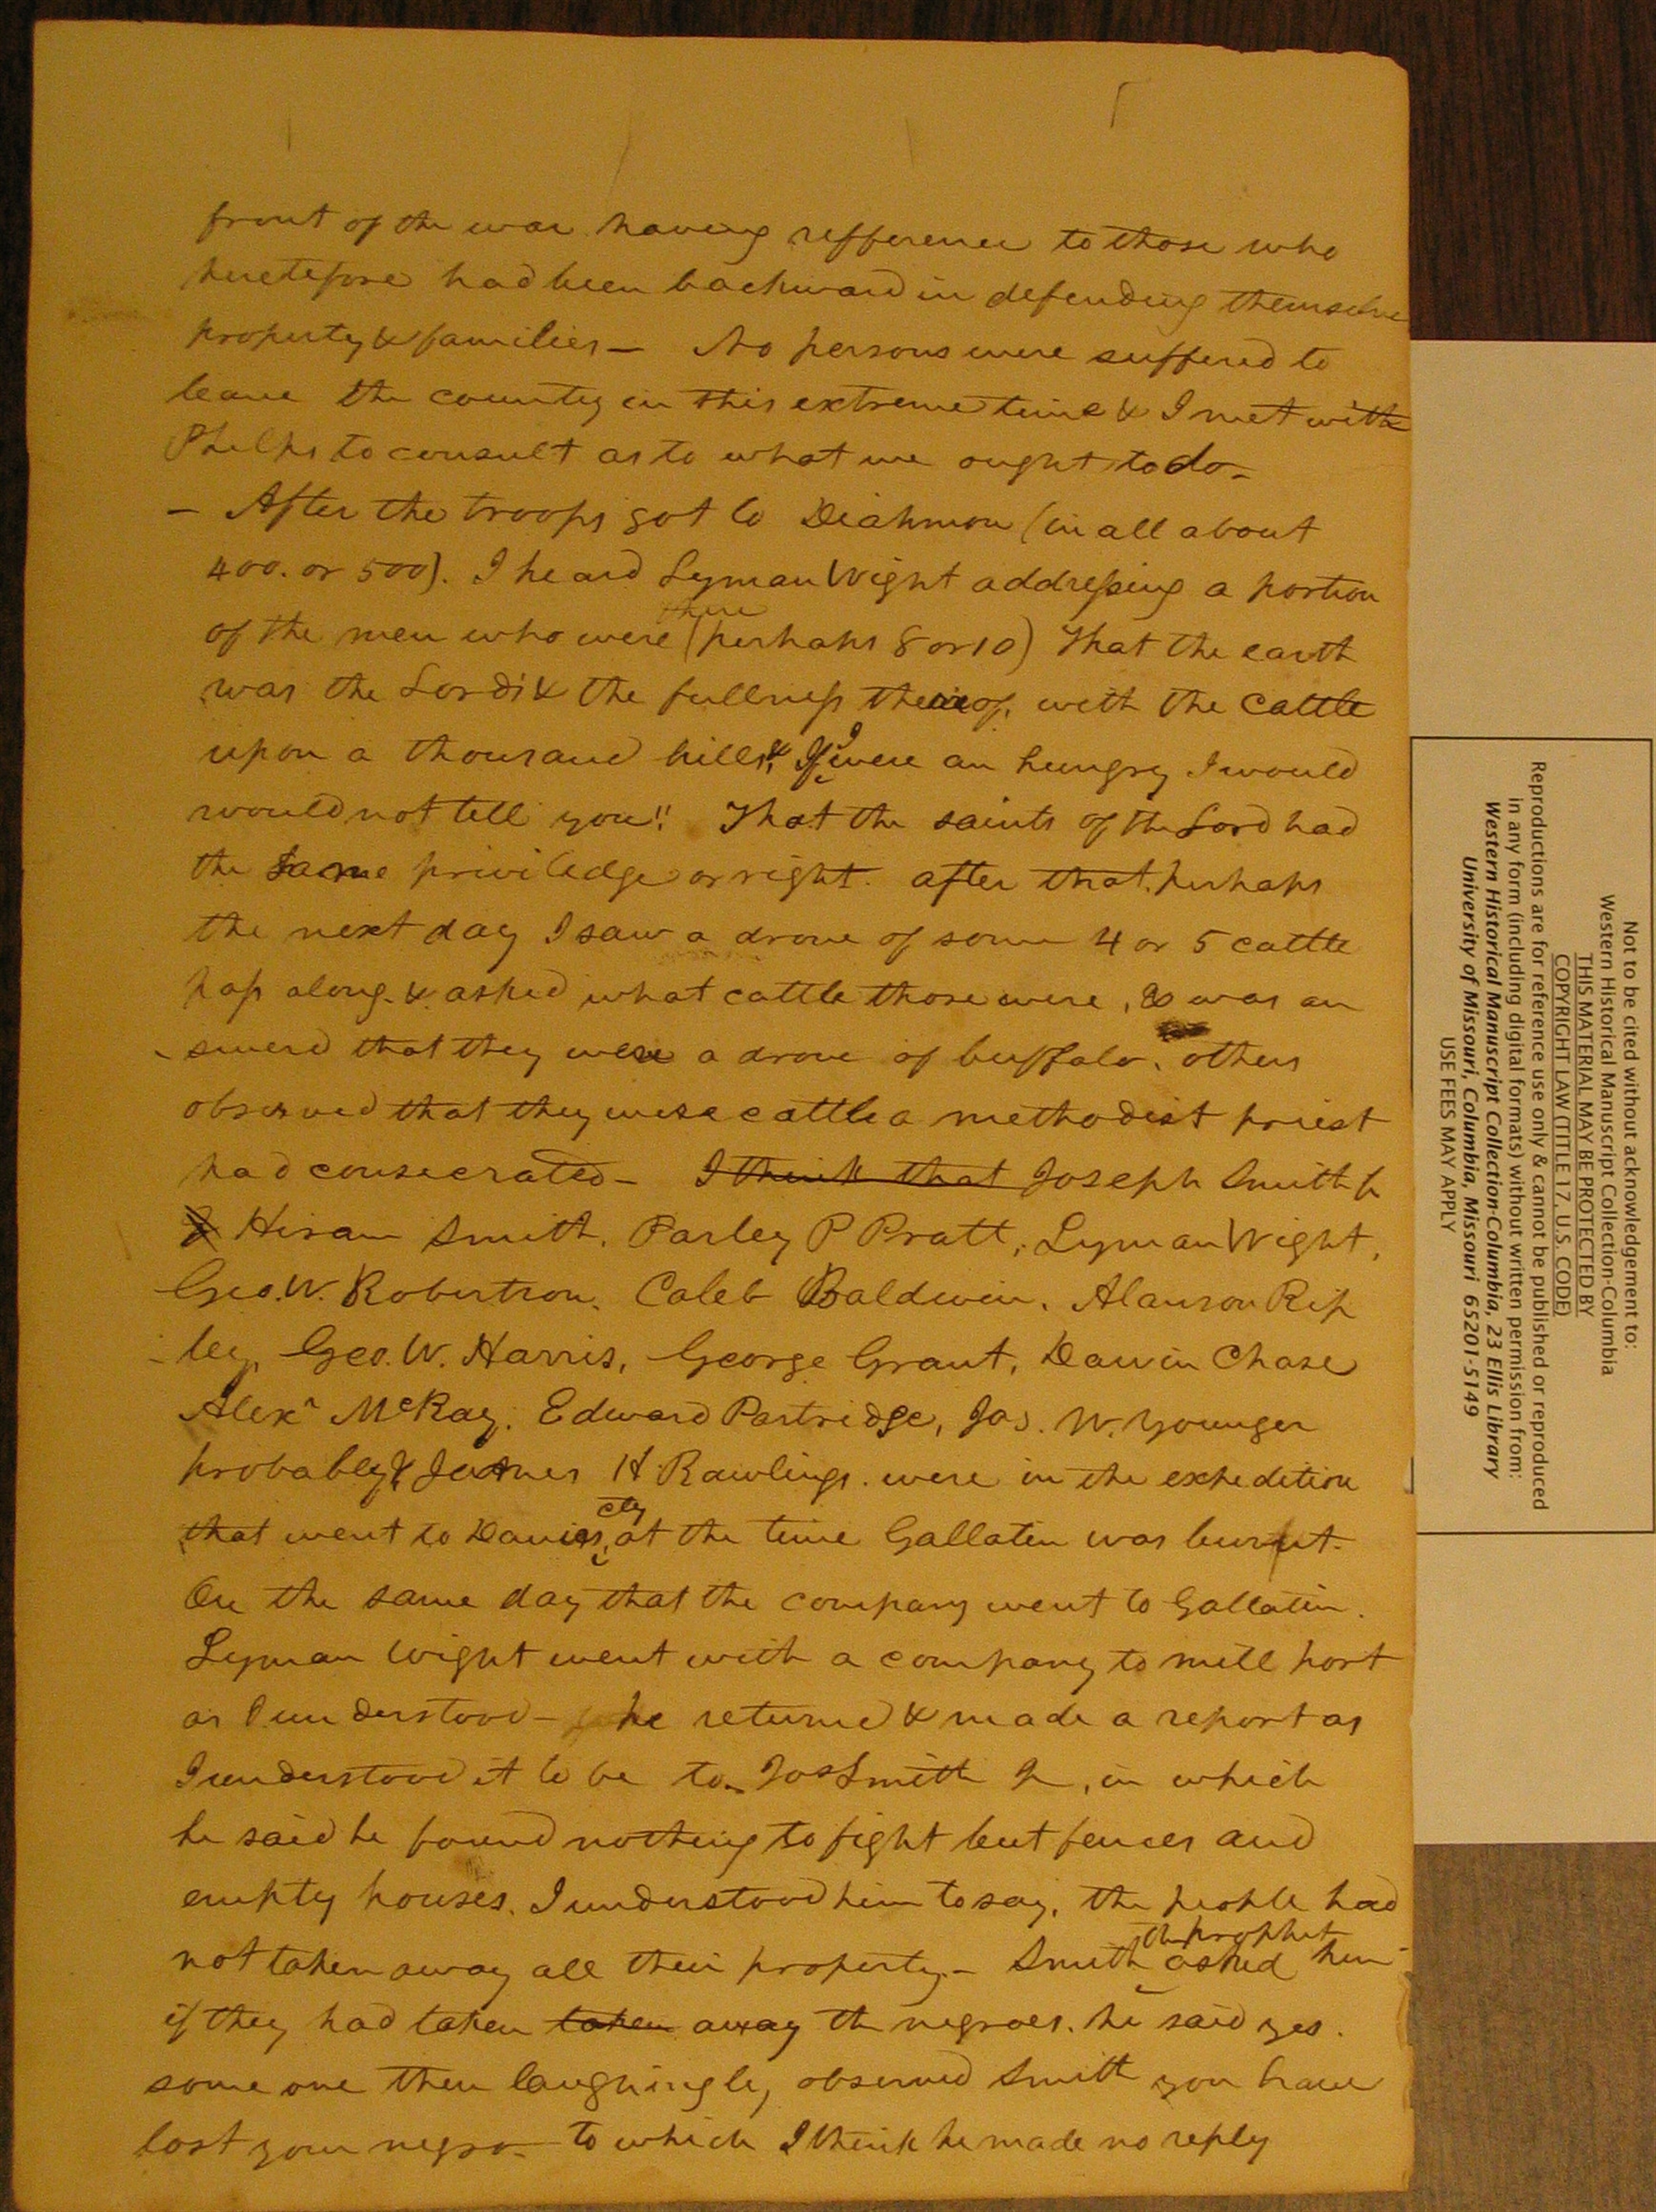 front of the war having refference to those who
heretofore had been backward in defending themselve
property & families — No persons were suffered to
leave the county in this extreme time & I met with
Phelps to consult as to what we ought to do —
— After the troops got to Diahmon (in all about
400. or 500). I heard Lyman Wight addressing a portion
of the men who were there (perhaps 8 or 10) That the earth
was the Lords & the fullness thereof, with the cattle
upon a thousand hills, & If I were an hungry I would
would not tell you!! That the saints of the Lord had
the same priviledge or right. after that, perhaps
the next day I saw a drove of some 4 or 5 cattle
pass along. & asked what cattle those were, & was an
swerd that they were a drove of buffalo. others
observed that they were cattle a methodist priest
had consecrated — I think that Joseph Smith Jr
& Hiram Smith, Parley P Pratt, Lyman Wight,
Geo. W. Robertson, Caleb Baldwin, Alanson Rip
ley, Geo. W. Harris, George Grant, Darwin Chase
Alexr McRay. Edward Partridge, Jas. W. Younger
probably & James H Rawlings. were in the expedition
that went to Daviess, cty at the time Gallatin was burnt.
On the same day that the company went to Gallatin.
Lyman Wight went with a company to mill port
as I understood — he returned & made a report as
I understood it to be to Jos Smith Jr, in which
he said he found nothing to fight but fences and
empty houses. I understood him to say, the people had
not taken away all their property — Smith the prophet asked him
if they had taken taken away the negroes. he said yes.
some one then laughingly observed Smith you have
lost your negro — to which I think he made no reply
Not to be cited without acknowledgement to:
Western Historical Manuscript Collection-Columbia
THIS MATERIAL MAY BE PROTECTED BY
COPYRIGHT LAW (TITLE 17, U.S. CODE)
Reproductions are for reference use only & cannot be published or reproduced
in any form (including digital formats) without written permission from:
Western Historical Manuscript Collection-Columbia, 23 Ellis Library
University of Missouri, Columbia, Missouri 65201-5149
USE FEES MAY APPLY